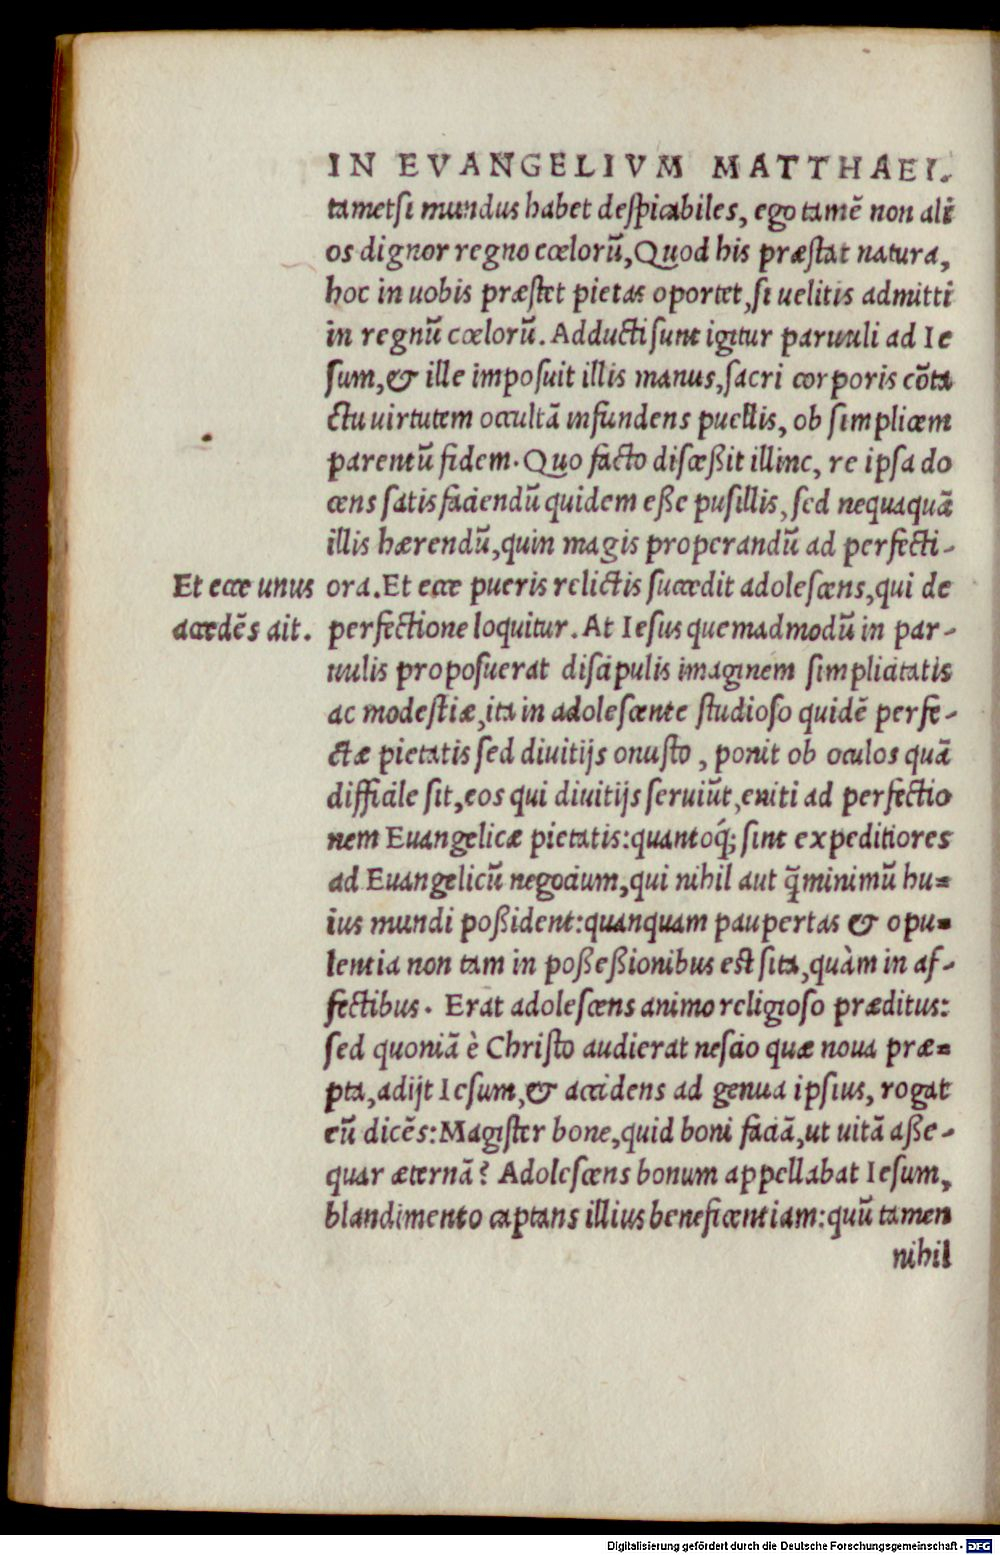 IN EVANGELIVM MATTHAEI.
tametsi mundus habet despicabiles, ego tamē non ali
os dignor regno cœlorū, Quod his præstat natura,
hoc in uobis præstet pietas oportet, si uelitis admitti
in regnū cœlorū. Adducti sunt igitur paruuli ad Ie
sum, & ille imposuit illis manus, sacri corporis cōta
ctu uirtutem occultā infundens puellis, ob simplicem
parentū fidem. Quo facto disceßit illinc, re ipsa do
cens satisfaciendū quidem eße pusillis, sed nequaquā
illis hærendū, quin magis properandū ad perfecti-
Et ecce unus
accedēs ait.
ora. Et ecce pueris relictis succedit adolescens, qui de
perfectione loquitur. At Iesus quemadmodū in par-
uulis proposuerat discipulis imaginem simplicitatis
ac modestiæ, ita in adolescente studioso quidē perfe-
ctæ pietatis sed diuitijs onusto, ponit ob oculos quā
difficile sit, eos qui diuitijs seruiūt, eniti ad perfectio
nem Euangelicæ pietatis: quantoq́; sint expeditiores
ad Euangelicū negocium, qui nihil aut q̄ minimū hu=
ius mundi poßident: quanquam paupertas & opu=
lentia non tam in poßeßionibus est sita, quàm in af-
fectibus. Erat adolescens animo religioso præditus:
sed quoniā è Christo audierat nescio quæ noua præ=
pta, adijt Iesum, & accidens ad genua ipsius, rogat
eū dicēs: Magister bone, quid boni faciā, ut uitā aße-
quar æternā? Adolescens bonum appellabat Iesum,
blandimento captans illius beneficentiam: quū tamen
nihil
Digitalisierung gefördert durch die Deutsche Forschungsgemeinschaft - DFG